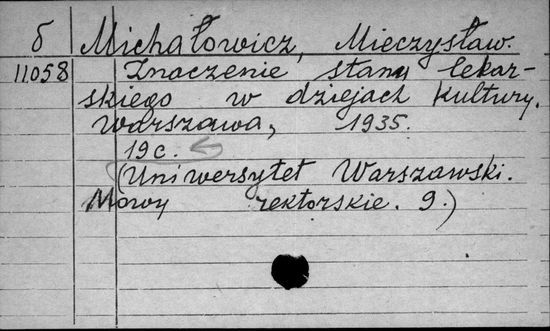 б Michałowicz, Mieczysław.
11058 Znaczenie stanu lekar-
skiego w dziejach kultury.
Warszawa, 1935.
19 c.
(Uniwersytet Warszawski.
Mowy rektorskie. 9.)